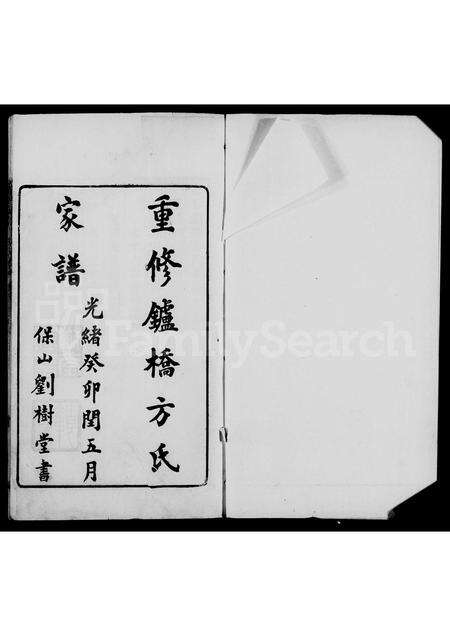 重修鑪橋方氏
家譜
光緒癸卯閏五月
保山劉樹堂書
FamilySearch